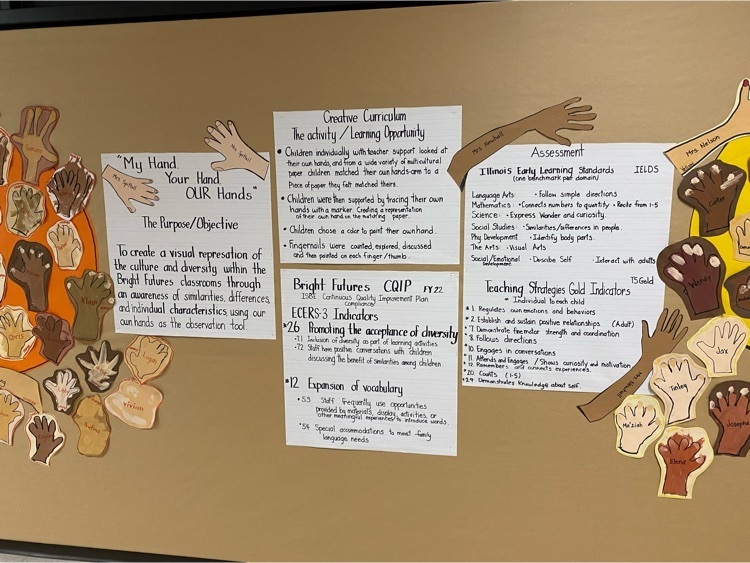 "My Hand
Your Hand
OUR Hands"
The Purpose/Objective
To create a visual represation of
the culture and diversity within the
Bright Futures classrooms through
an awareness of similarities, differences,
and individual characteristics, using our
own hands as the observation tool.
Creative Curriculum
The activity / Learning Opportunity
• Children individually with teacher support looked at
their own hands, and from a wide variety of multicultural
paper children matched their own hands-arm to a
Piece of paper they felt matched theirs.
• Children were then supported by tracing their own
hands with a marker. Creating a representation
of their own hand on the matching paper.
• Children chose a color to paint their own hand.
• Fingernails were counted, explored, discussed
and then painted on each finger/thumb.
Bright Futures CQIP FY22
ISBE Continuous Quality Improvement Plan
Compliance/
ECERS-3 Indicators
*26 Promoting the acceptance of diversity
•7.1 Inclusion of diversity as part of learning activities
•7.2 Staff have positive conversations with children
discussing the benefit of similarities among children.
*12 Expansion of vocabulary
•5.3 Staff frequently use opportunities
provided by materials, display, activities, or
other meaningful experiences to introduce words.
•5.4 Special accommodations to meet family
language needs
Assessment
Illinois Early Learning Standards IELDS
(one benchmark per domain)
Language Arts: • Follow simple directions
Mathematics: • Connects numbers to quantity • Recite from 1-5
Science: • Express Wonder and curiosity.
Social Studies: • Similarities/differences in people.
Phy Development • Identify body parts.
The Arts: • Visual Arts
Social/Emotional • Describe Self • Interact with adults
Development
TSGold
Teaching Strategies Gold Indicators
* Individual to each child
*1. Regulates own emotions and behaviors
*2. Establish and sustain positive relationships (Adult)
*7. Demonstrate fine motor strength and coordination
*8. Follows directions
*10. Engages in conversations
*11. Attends and Engages / Shows curiosity and motivation
*12. Remembers and connects experiences.
*20. Counts (1-5)
*29. Demonstrates Knowledge about self.
Mrs. Newhall
Mrs. Nelson
Carter
Wendy
Jax
Finley
Ma'ziah
Josephe
Elena
Khari
Chris
Vivian